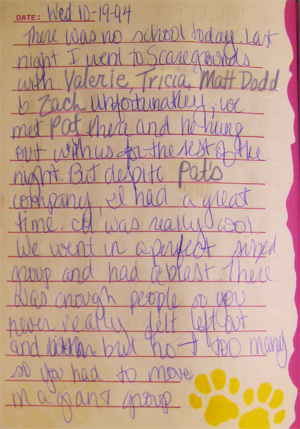 DATE: Wed 10-19-94
There was no school today. Last
night I went to Scaregrounds
with Valerie, Tricia, Matt Dodd
& Zach unfortunatley, we
met Pat there and he hung
out with us for the rest of the
night. But despite Pats
company, I had a great
time. It was really cool.
We went in a perfect sized
group and had a blast. There
was enough people so you
never really felt left out
and but not too many
so you had to move
in a giant group